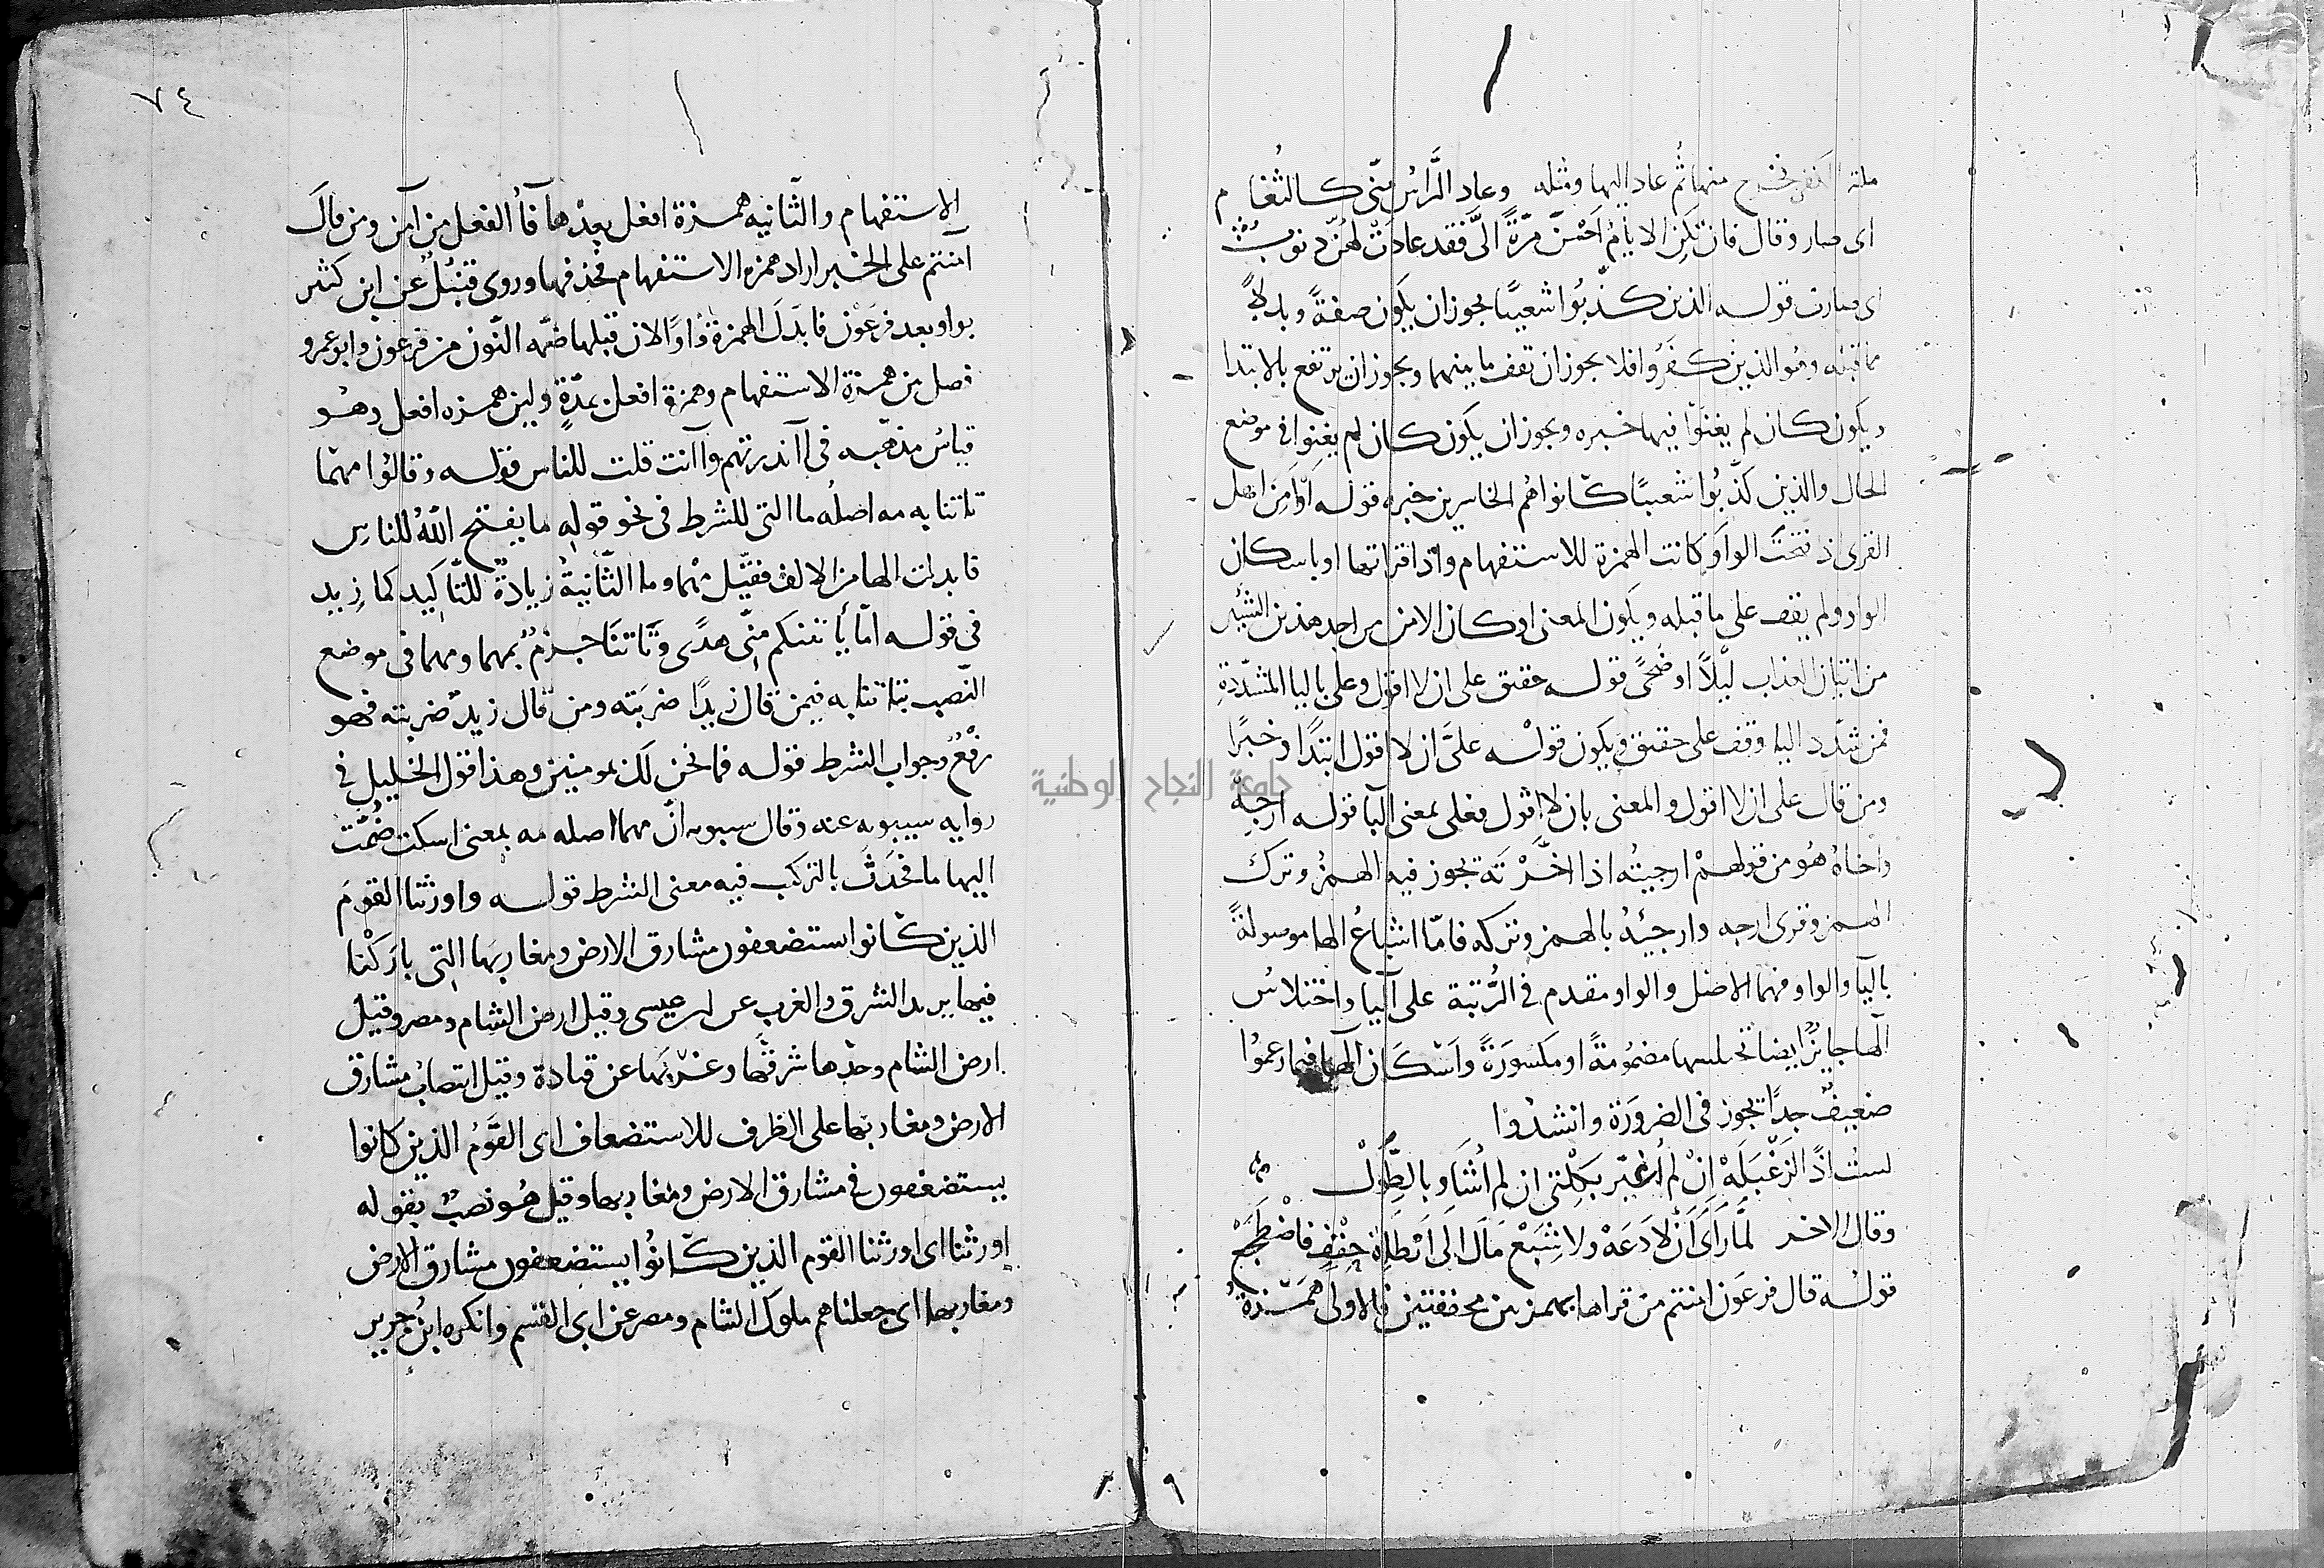 ملة الكفر فخرج منها ثم عاد اليها ومثله وعاد الرَّاسُ منّى كالثغام
اى صار وقال فان تكن الايامُ احْسَنَّ مرّةً الىَّ فقد عادَتْ لهُنّ ذنوبُ
اى صارت قوله الذين كذّبُوا شعيبًا يجوز ان يكون صفةً وبدلاً
مما قبله وهو الذين كفرُوا فلا يجوز ان تقف ما بينهما ويجوز ان يرتفع بالابتدا
ويكون كان لم يغنَوْا فيها خبره ويجوز ان يكون كان لم يغنوا فى موضع
الحال والذين كذّبُوا شعيبًا كانوا هُم الخاسرين خبره قوله اَوَاَمِنَ اهل
القرى اذ فتحتَ الواوَ كانت الهمزة للاستفهام واذا قراتها او باسكان
الواو ولم يقف على ما قبله ويكون المعنى اوكان الامن من احد هذين الشيئين
من اتيان العذاب ليلاً او ضُحًى قوله حقيق على ان لا اقول وعلى باليا المشدّدة
فمن شدّد اليا وقف على حقيق ويكون قولُه علىَّ ان لا اقول ابتدًا وخبرًا
ومن قال على ان لا اقول والمعنى بان لا اقول فعلى بمعنى البآ قوله ارجِهْ
واخاهُ هُو من قولهمْ ارجيتُه اذا اخَّرْتَه يجوز فيه الهمزُ وترك
الهمز وقرى ارجه وارجئهُ بالهمز وتركه فامّا اشباعُ الها موصولةً
باليآ والواو فهما الاصل والواو مقدم فى الرُّتبة على اليآ واختلاسُ
الها جايزٌ ايضا تختلسها مضمُومةً او مكسورَةً واسْكَان الها فيما زعموُا
ضعيفٌ جدًا يجوز فى الضرورَة وانشدُوا
لستُ اذًا لزَعْبَلَهْ اِنْ لم اُغيّر بَكِلْتى ان لم اُشَاَو بالطِّوَلْ
وقال الاخر لمَّا رَاَى اَنْ لا دَعَهْ ولا شِبَعْ مَالَ الى اَرْطَاةِ حِقْفٍ فاضْطَجَعْ
قولُه قال فرعَون امنتم من قراها بهمزتين محققتين فالاولى همْزةُ
٧٤
الاستفهام والثّانيه همزة افعل بعدَها فآُ الفعل من آمن ومن قالَ
آمنتم على الخبر اراد همزه الاستفهام فحذفها وروى قنبلُ عن ابن كثير
بواو بعد فرعَوْن فابدَلَ الهمزةَ وَاوًا لان قبلها ضمّه النّون من فرعون وابو عمرو
فصل بين همزة الاستفهام وهمزة افعل بمدّةٍ وليّن همزه افعل وهُو
قياسُ مذهبه فى آانذرتهم وآانت قلت للناس قوله وقالُوا مهمَا
تاتنا به مه اصلُه ما التى للشرط فى نحو قولِه ما يفتح اللّهُ للناسِ
فابدلت الها من الالف فقيل مهْما وما الثَّانيةُ زيادةٌ للتّاكِيد كما زِيد
فى قوله امّا ياتينكم منِّى هدًى وتاتنَا جزمٌ بمهما ومهما فى موضع
النّصب بتاتنا به فيمن قال زيدًا ضربته ومن قال زيدٌ ضربته فهو
رفعٌ وجواب الشرط قوله فما نحن لَك بمومنين وهذا قول الخليل فى
روايه سيبويه عنه وقال سيبويه انّ مهما اصله مه بمعنى اسكت ضُمّت
اليها ما فحَدَثَ بالتركيب فيه معنى الشرط قوله واورثنا القومَ
الذين كانوا يستضعفون مشارق الارض ومغاربَها التِى باركْنا
فيها يريد الشرق والغرب عن ابى عيسى وقيل ارض الشام ومصر وقيل
ارض الشام وحدها شرقها وغربَها عن قتادة وقيل انتصابُ مشارق
الارض ومغاربها على الظرف للاستضعاف اى القَومُ الذين كانوا
يستضعفون فى مشارق الارض ومغاربها وقيل هُو نصبٌ بقوله
اورثنا اى اورثنا القوم الذين كانُوا يستضعفون مشارق الارض
ومغاربها اى جعلناهم ملوك الشام ومصر عن ابى القسم وانكره ابنُ جرير
جامعة النجاح الوطنية